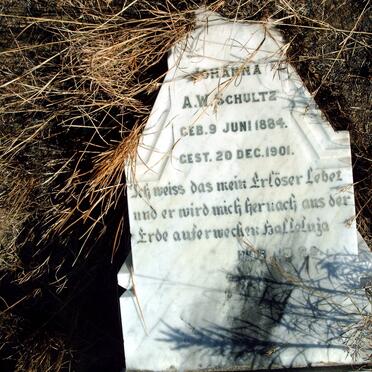 JOHANNA
A.W. SCHULTZ
GEB. 9 JUNI 1884.
GEST. 20 DEC. 1901.
Ich weiss das mein Erlöser Lebet
und er wird mich hernach aus der
Erde auferwecken Halleluja